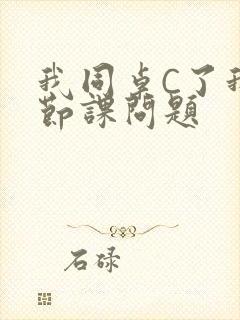 我同桌C了我
节课问题
石碌